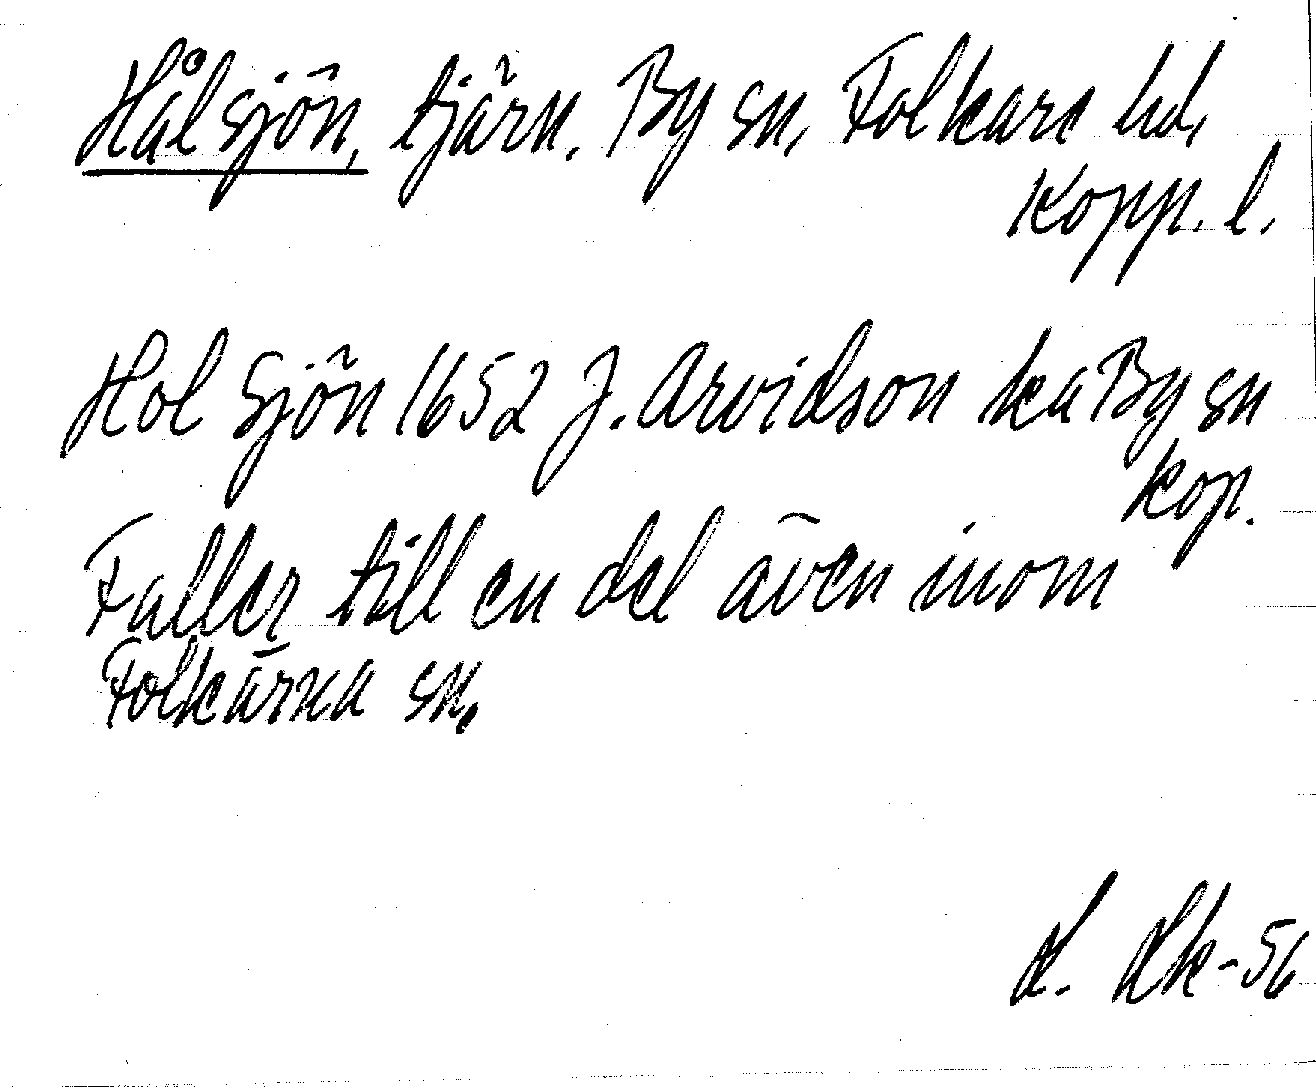 Hålsjön, tjärn. By sn, Folkare hd,
Kopp. l.
Hol Sjön 1652 J. Arvidson ka By sn
kop.
Faller till en del även inom
Folkärna sn.
-56